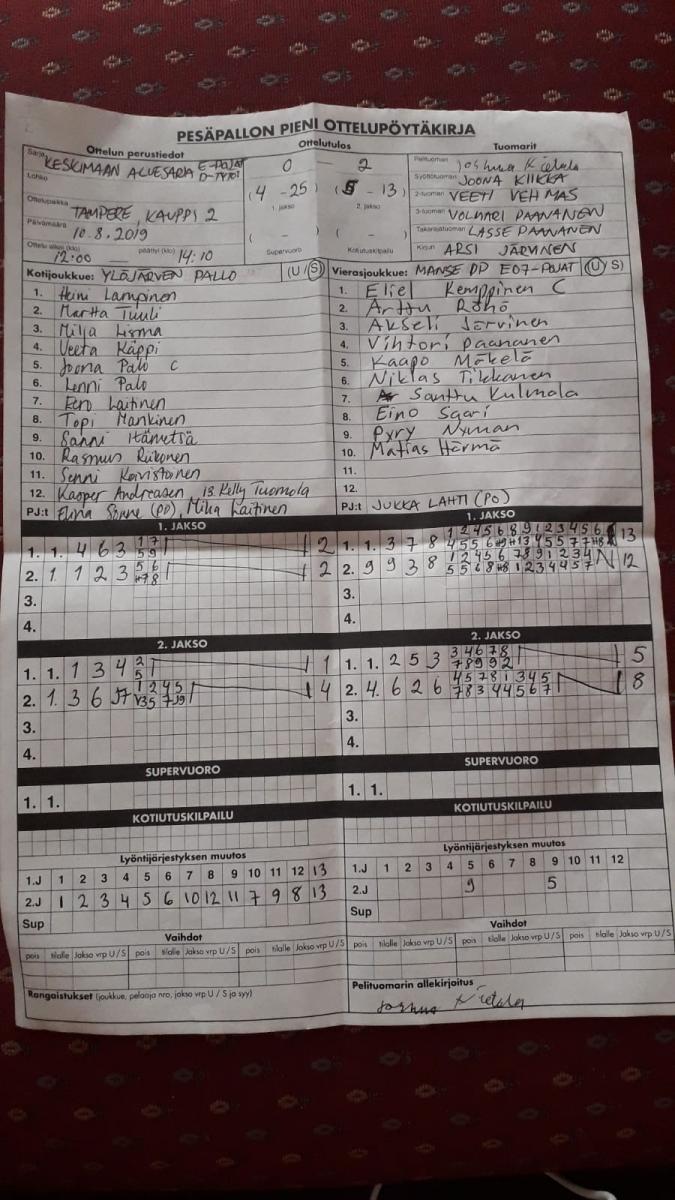 PESÄPALLON PIENI OTTELUPÖYTÄKIRJA
Ottelun perustiedot Ottelutulos Tuomarit
Sarja KESKIMAAN ALUESARJA E-POJAT
D-TYTÖT
Lohko
Ottelupaikka TAMPERE, KAUPPI 2
Päivämäärä 10.8.2019
Ottelu alkoi (klo) 12:00 päättyi (klo) 14:10
0 — 2
(4 - 25) (5 - 13)
1. jakso 2. jakso
( - ) ( - )
Supervuoro Kotiutuskilpailu
Pelituomari Joshua Kietala
Syöttötuomari JOONA KIIKKA
2-tuomari VEETI VEHMAS
3-tuomari VOLMARI PAANANEN
Takarajatuomari LASSE PAANANEN
Kirjuri ARSI JÄRVINEN
Kotijoukkue: YLÖJÄRVEN PALLO (U / S)
1. Heini Lampinen
2. Martta Tuuli
3. Milja Lisma
4. Veeta Käppi
5. Joona Palo C
6. Lenni Palo
7. Eero Laitinen
8. Topi Mankinen
9. Sanni Hämettiä
10. Rasmus Riikonen
11. Senni Koivistoinen
12. Kasper Andreasen 13. Kelly Tuomola
PJ:t Elina Sonne (PO), Mika Laitinen
Vierasjoukkue: MANSE PP E07-POJAT (U / S)
1. Eliel Kemppinen C
2. Arttu Röhö
3. Akseli Järvinen
4. Vihtori Paananen
5. Kaapo Mäkelä
6. Niklas Tikkanen
7. Santtu Kulmala
8. Eino Saari
9. Pyry Nyman
10. Matias Härmä
11.
12.
PJ:t JUKKA LAHTI (PO)
1. JAKSO
1. 1. 4 6 3 1 7 2
5 9
2. 1. 1 2 3 5 6 2
H7 8
3.
4.
1. JAKSO
1. 1. 3 7 8 1 2 4 5 6 8 9 1 2 3 4 5 6 13
2. 9 9 3 8 1 2 4 5 6 7 8 9 1 2 3 4 N 12
3.
4.
2. JAKSO
1. 1. 1 3 4 2 1
5
2. 1. 3 6 1 2 4 5 4
3.
4.
2. JAKSO
1. 1. 2 5 3 3 4 6 7 8 5
7 8 9 9 2
2. 4. 6 2 6 4 5 7 8 1 3 4 5 8
7 8 3 4 4 5 6 7
3.
4.
SUPERVUORO
1. 1.
SUPERVUORO
1. 1.
KOTIUTUSKILPAILU
KOTIUTUSKILPAILU
Lyöntijärjestyksen muutos
1.J 1 2 3 4 5 6 7 8 9 10 11 12 13
2.J 1 2 3 4 5 6 10 12 11 7 9 8 13
Sup
Lyöntijärjestyksen muutos
1.J 1 2 3 4 5 6 7 8 9 10 11 12
2.J 9 5
Sup
Vaihdot
pois tilalle Jakso vrp U / S pois tilalle Jakso vrp U / S pois tilalle Jakso vrp U / S
Vaihdot
pois tilalle Jakso vrp U / S pois tilalle Jakso vrp U / S pois tilalle Jakso vrp U / S
Rangaistukset (joukkue, pelaaja nro, jakso vrp U / S ja syy)
Pelituomarin allekirjoitus
Joshua Kietala